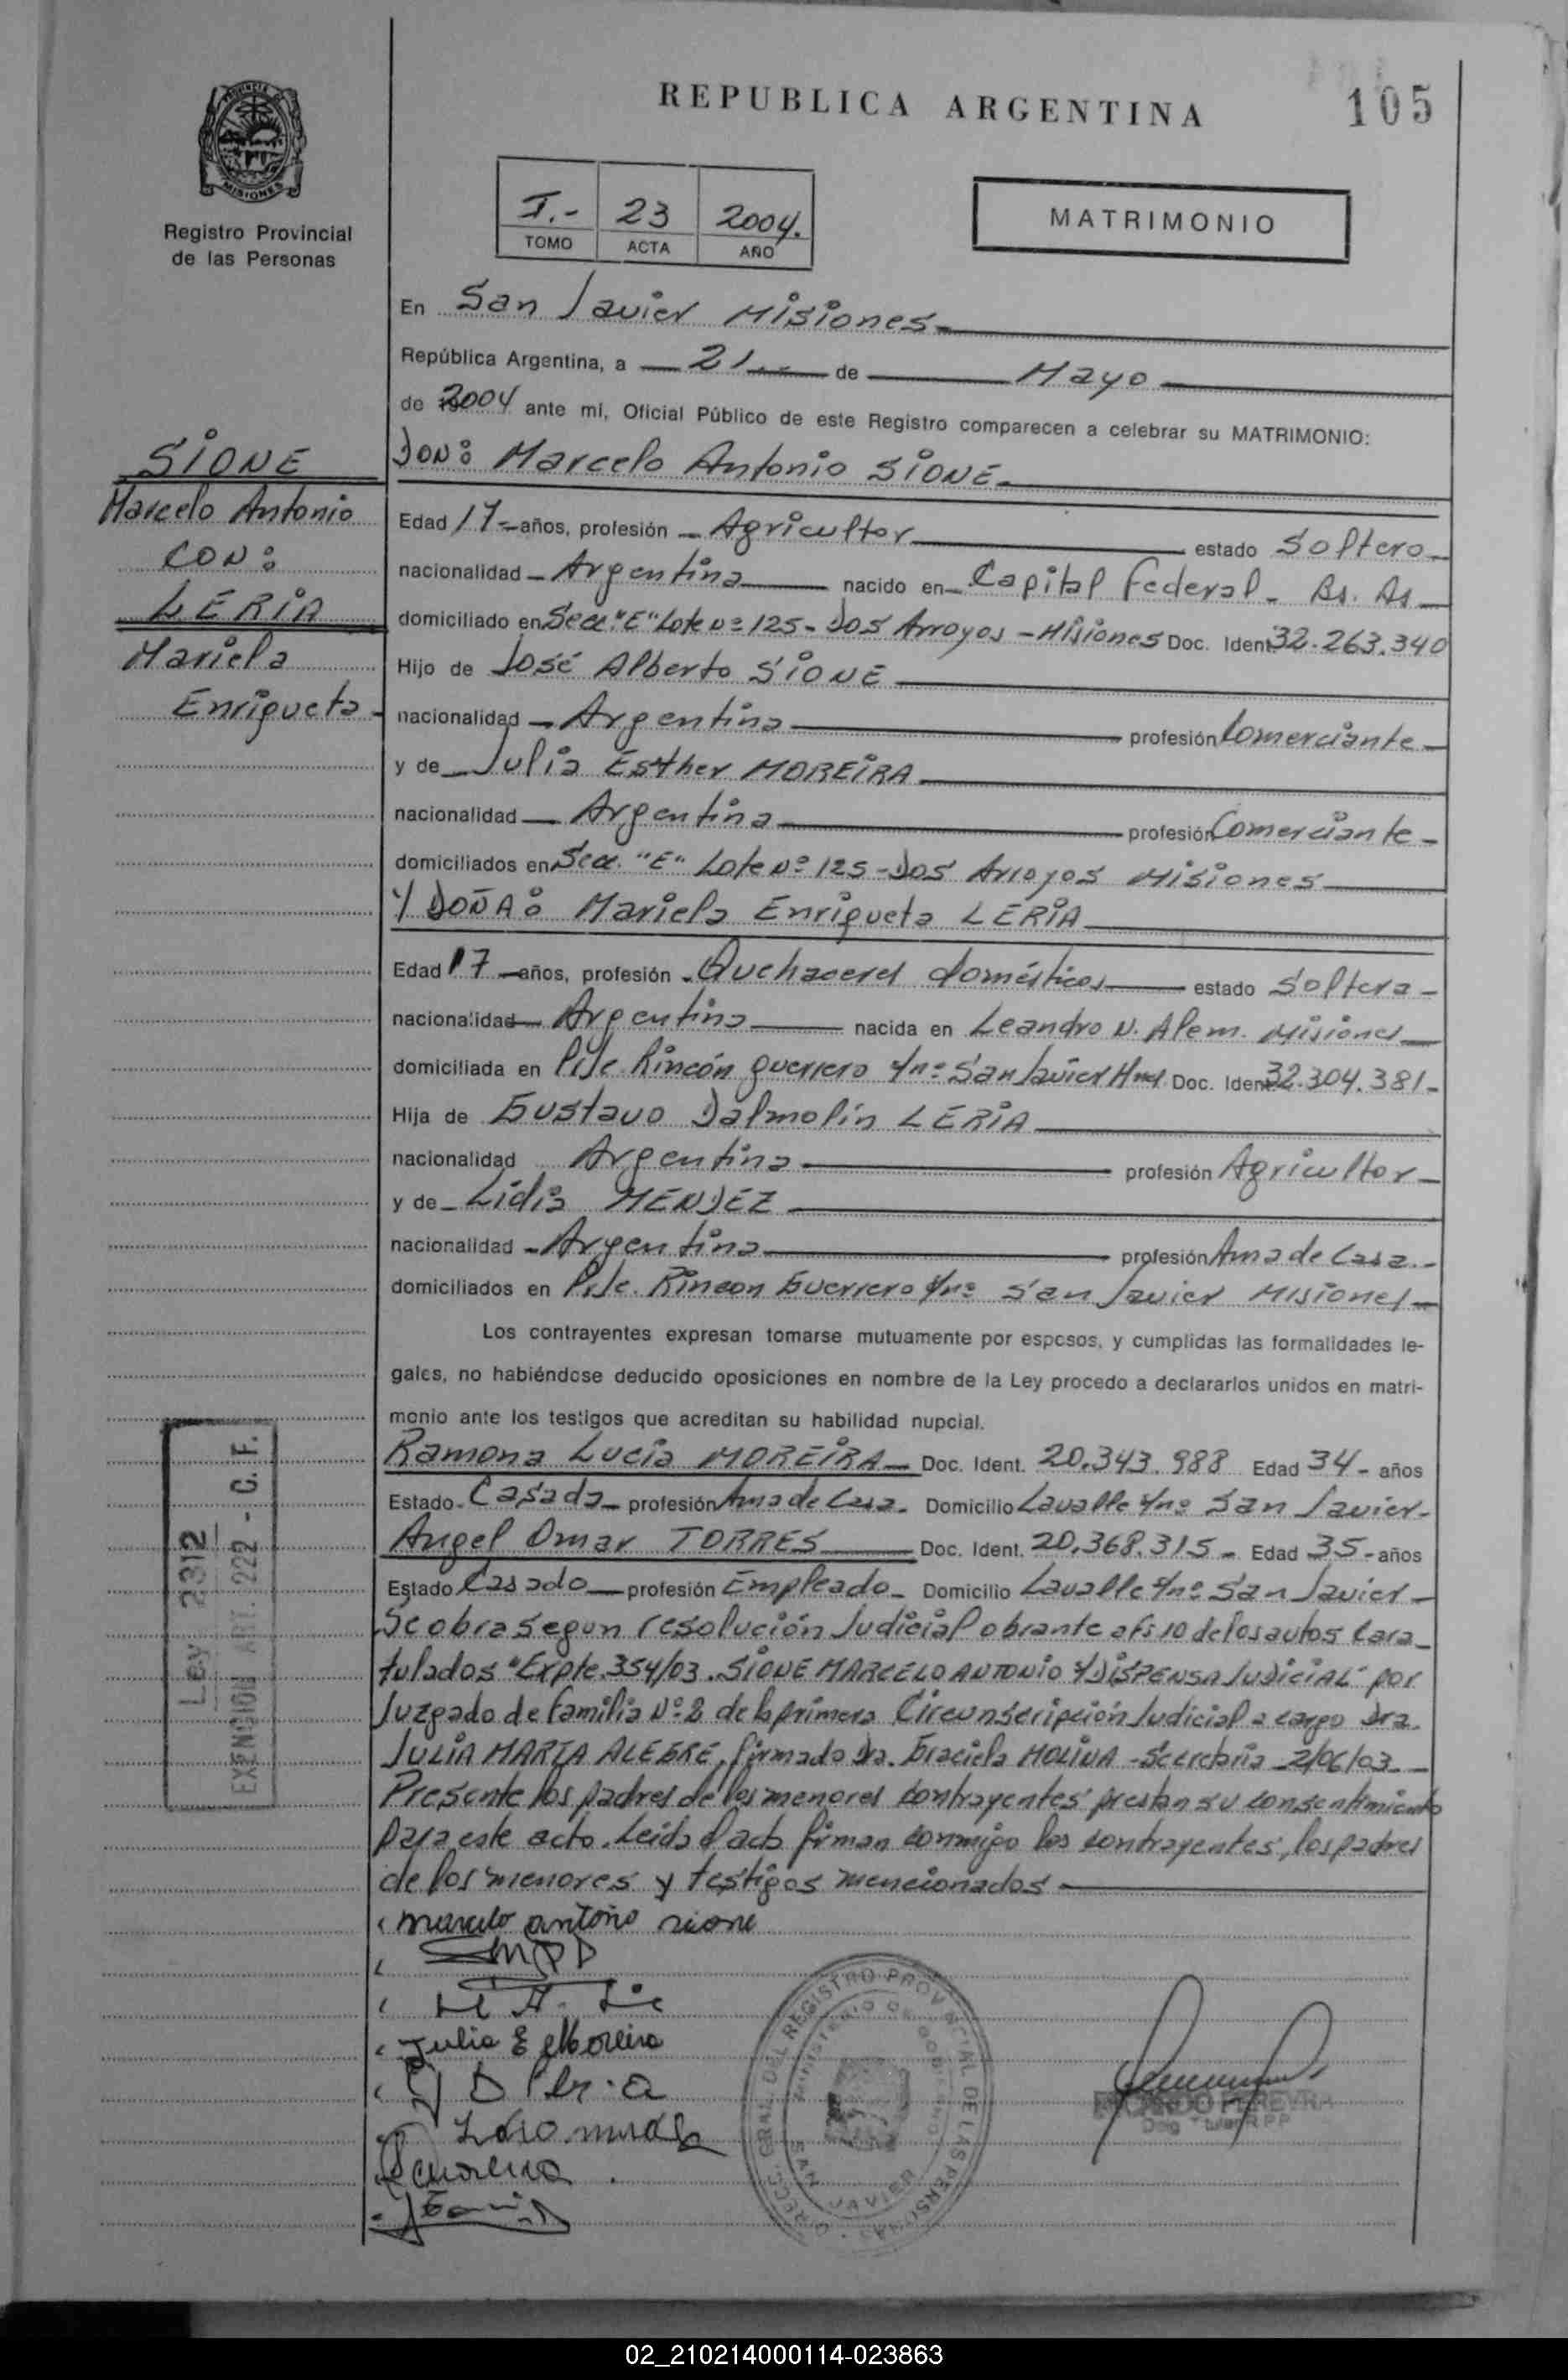 REPUBLICA ARGENTINA
105
PROVINCIA DE
MISIONES
Registro Provincial
de las Personas
I.- 23 2004.
TOMO ACTA AÑO
MATRIMONIO
En San Javier Misiones
República Argentina, a 21 de Mayo
de 2004 ante mí, Oficial Público de este Registro comparecen a celebrar su MATRIMONIO:
SIONE
Marcelo Antonio
CON:
LERIA
Mariela
Enriqueta
DON: Marcelo Antonio SIONE
Edad 17 años, profesión Agricultor estado Soltero
nacionalidad Argentina nacido en Capital Federal - Bs. As
domiciliado en Secc. "E" Lote Nº 125 - Dos Arroyos - Misiones Doc. Ident 32.263.340
Hijo de José Alberto SIONE
nacionalidad Argentina profesión Comerciante
y de Julia Esther MOREIRA
nacionalidad Argentina profesión Comerciante
domiciliados en Secc. "E" Lote Nº 125 - Dos Arroyos Misiones
Y DOÑA: Mariela Enriqueta LERIA
Edad 17 años, profesión Quehaceres domésticos estado Soltera
nacionalidad Argentina nacida en Leandro N. Alem. Misiones
domiciliada en Pje. Rincón guerrero s/nº San Javier Mnes Doc. Ident 32.304.381
Hija de Gustavo Dalmolín LERIA
nacionalidad Argentina profesión Agricultor
y de Lidia MENDEZ
nacionalidad Argentina profesión Ama de Casa.
domiciliados en Pje. Rincon Guerrero s/nº San Javier Misiones
Los contrayentes expresan tomarse mutuamente por esposos, y cumplidas las formalidades le-
gales, no habiéndose deducido oposiciones en nombre de la Ley procedo a declararlos unidos en matri-
monio ante los testigos que acreditan su habilidad nupcial.
Ramona Lucía MOREIRA Doc. Ident. 20.343.988 Edad 34 años
Estado Casada profesión Ama de Casa. Domicilio Lavalle s/nº San Javier
Angel Omar TORRES Doc. Ident. 20.368.315 Edad 35 años
Estado Casado profesión Empleado Domicilio Lavalle s/nº San Javier
Se obra segun resolución Judicial obrante a fs 10 de los autos Cara
tulados "Expte. 354/03. SIONE MARCELO ANTONIO S/DISPENSA JUDICIAL" por
Juzgado de familia Nº 2 de la primera Circunscripción Judicial a cargo Dra.
JULIA MARTA ALEGRE, firmado Dra. Graciela MOLINA - Secretaria 2/06/03
Presente los padres de los menores contrayentes prestan su consentimiento
para este acto. Leida el acta firman conmigo los contrayentes, los padres
de los menores y testigos mencionados
Ley 2312
EXENCION ART. 222 - C. F.
marcelo antonio sione
Julia E Moreira
DIRECC. GRAL. DEL REGISTRO PROVINCIAL DE LAS PERSONAS
MINISTERIO DE GOBIERNO
SAN JAVIER
PEREYRA
02_210214000114-023863